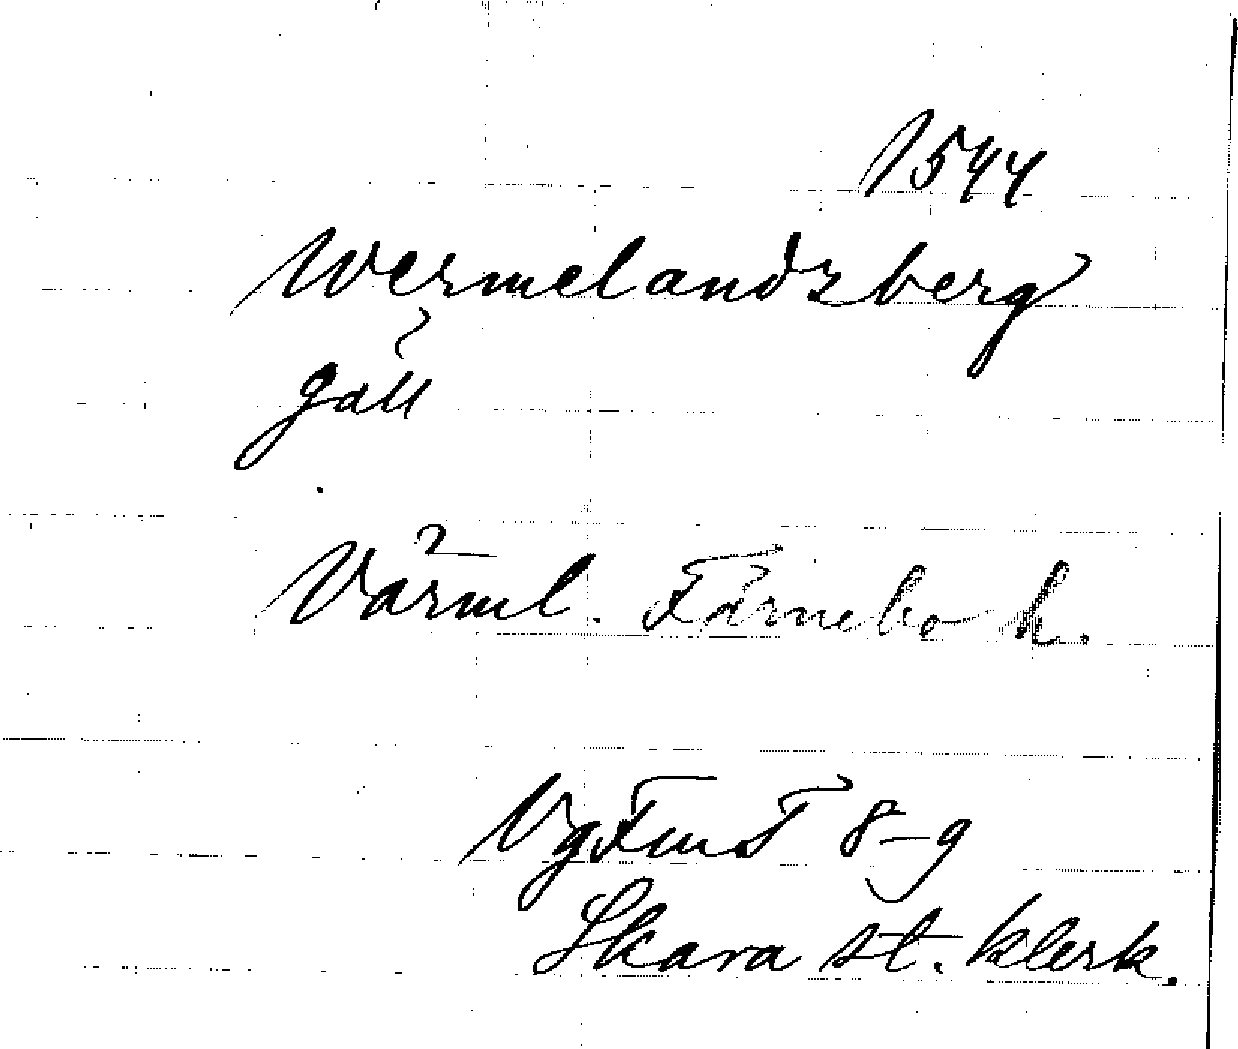 1544
Wermelandzberg
gäll
Värml. Färnebo h.
VgFmT 8-9
Skara st. klerk.